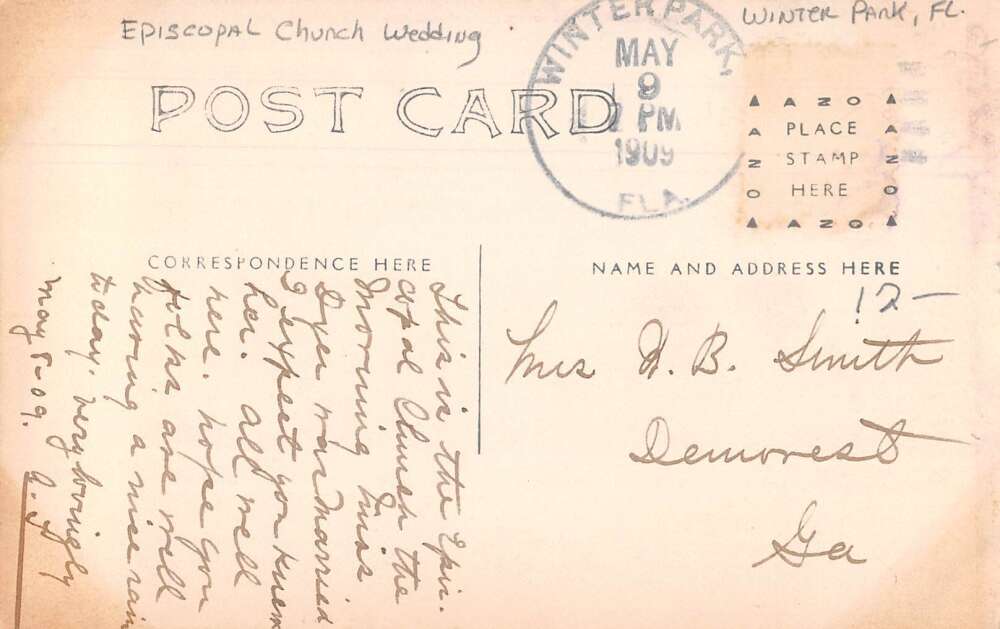 EPISCOPAL Church Wedding
WINTER PARK, FL.
WINTER PARK,
MAY
9
2 PM
1909
FLA.
POST CARD
AZO
PLACE
STAMP
HERE
AZO
AZO
AZO
CORRESPONDENCE HERE
NAME AND ADDRESS HERE
12-
This is the Epis-
copal Church the
Morning Miss
Dyer was Married
I expect you knew
her. all well
here. hope you
folks are well
having a nice rain
today, very lovingly
May 8-09.
Mrs. H. B. Smith
Demorest
Ga